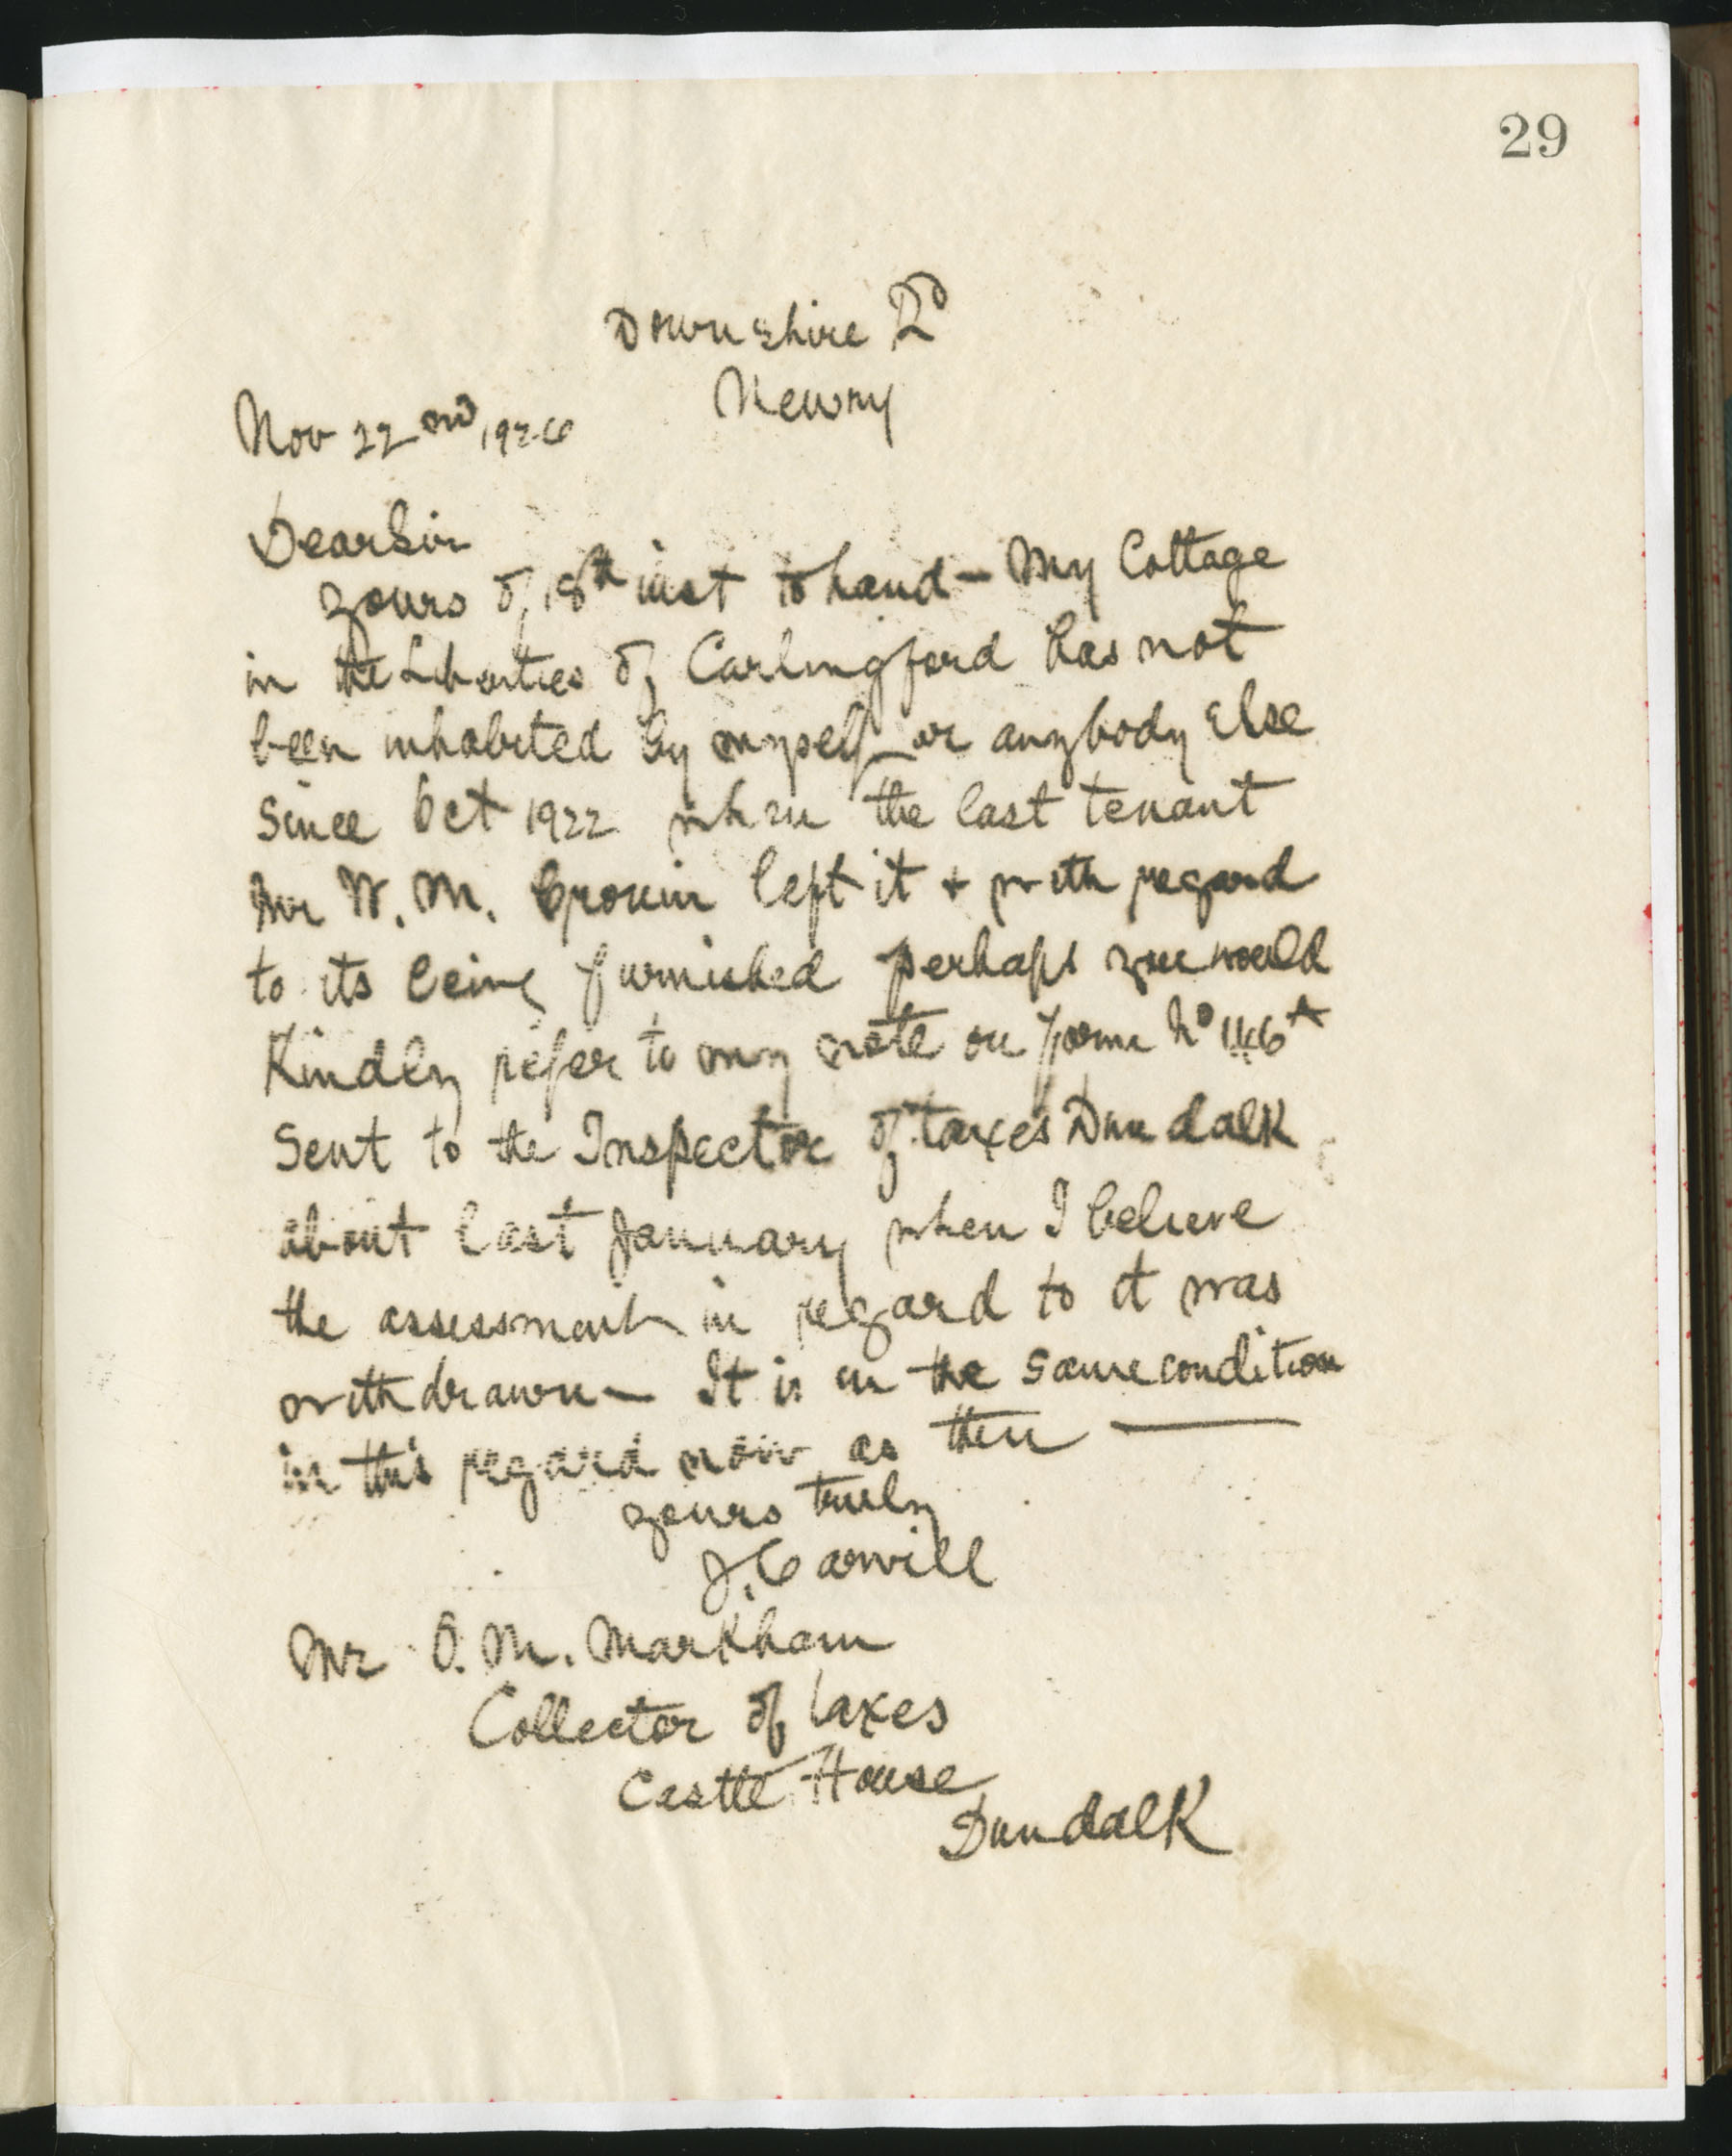 29
Downshire Rd
Newry
Nov 22nd, 1926
Dear Sir
yours of 18th inst to hand - My Cottage
in the Liberties of Carlingford has not
been inhabited by myself or anybody Else
Since Oct 1922 when the last tenant
Mr W. M. left it + with regard
to its being furnished perhaps you would
Kindly refer to my note on form No 146A
Sent to the Inspector of taxes Dundalk
about last January when I believe
the assessment in regard to it was
withdrawn - It is in the same condition
in this regard now as then —
yours truly
J. Carvill
Mr O. M. Markham
Collector of taxes
Castle House
Dundalk